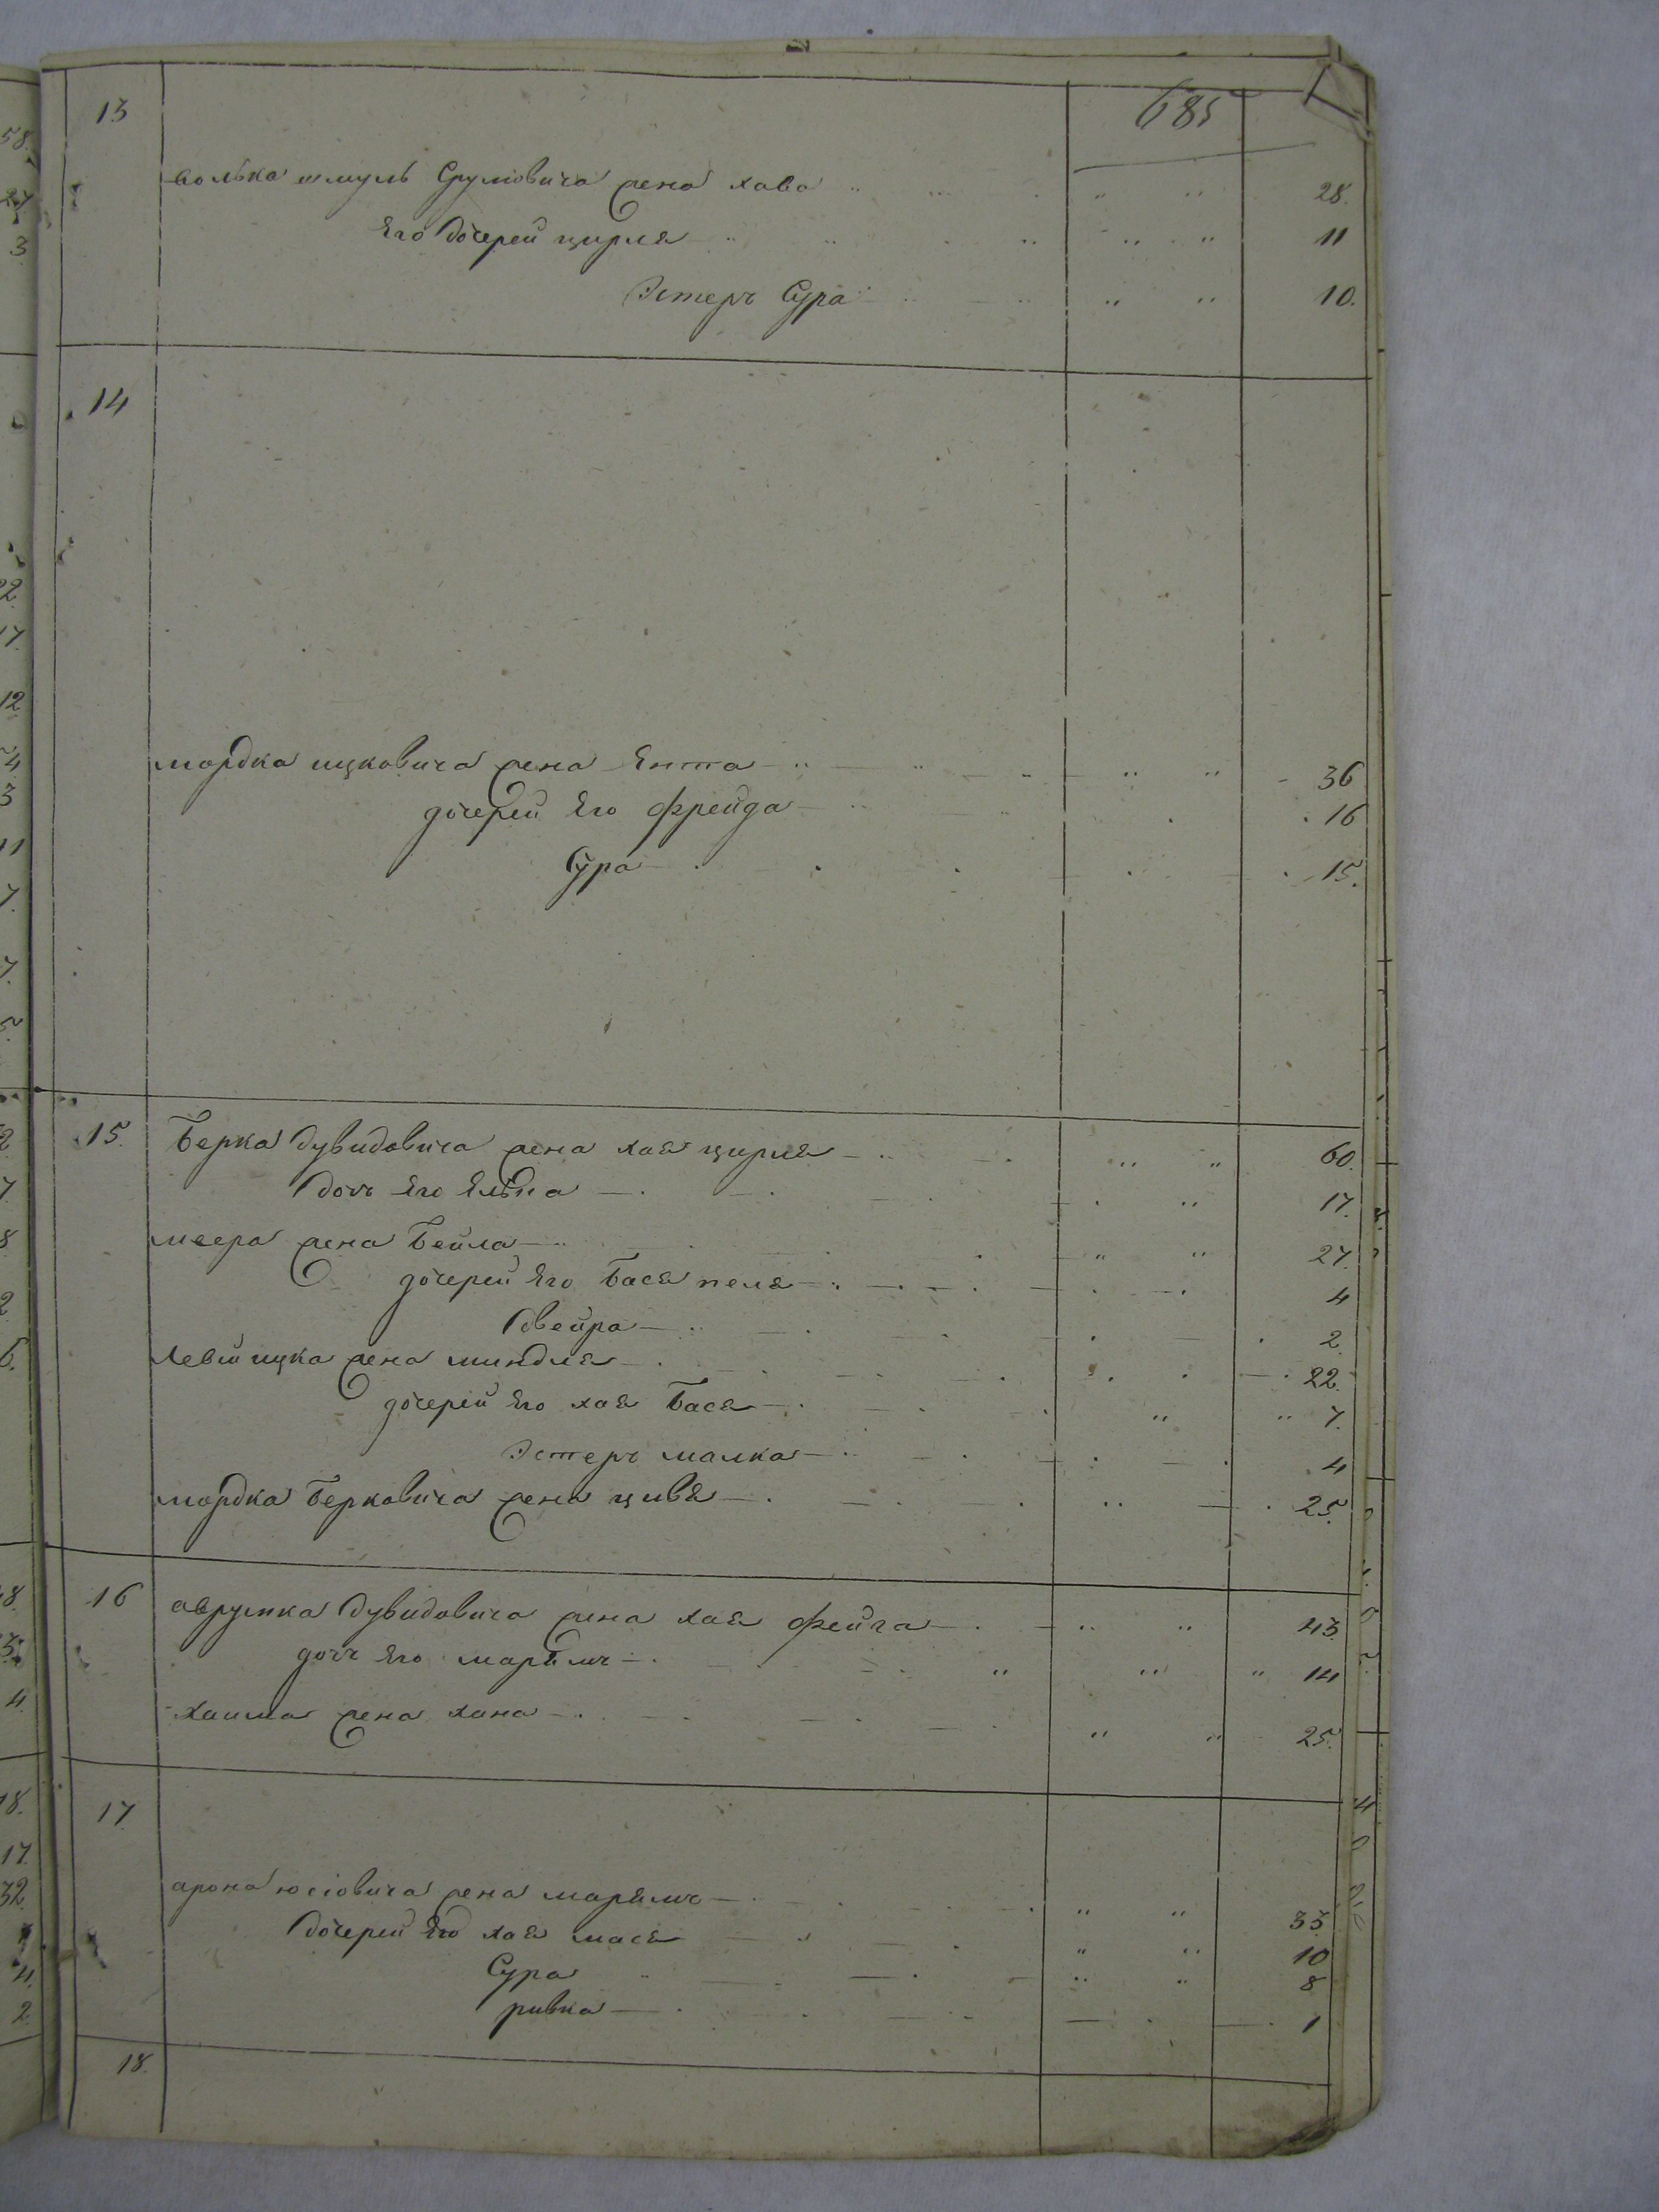 13 685
волька шмуль Срумовича жена хава 28.
Его дочерей цирля 11
Эстеръ Сура 10.
14
мордка ицковича жена Ента 36
дочерей Его фрейда 16
Сура 15.
15. Берка дувидовича жена хая цирля 60.
дочь Его Елька 17.
меера жена Бейла 27.
дочерей Его Бася пеля 4
двейра 2.
Левiи ицка жена миндля 22.
дочерей Его хая Бася 7.
Эстеръ малка 4
мордка Берковича жена цивя 25.
16 аврумка дувидовича жена хая фейга 43.
дочь Его марямъ 14
хаима жена хана 25.
17.
арона юсiовича жена марямъ 33
дочерей Его хая мася 10
Сура 8
ривка 1
18.